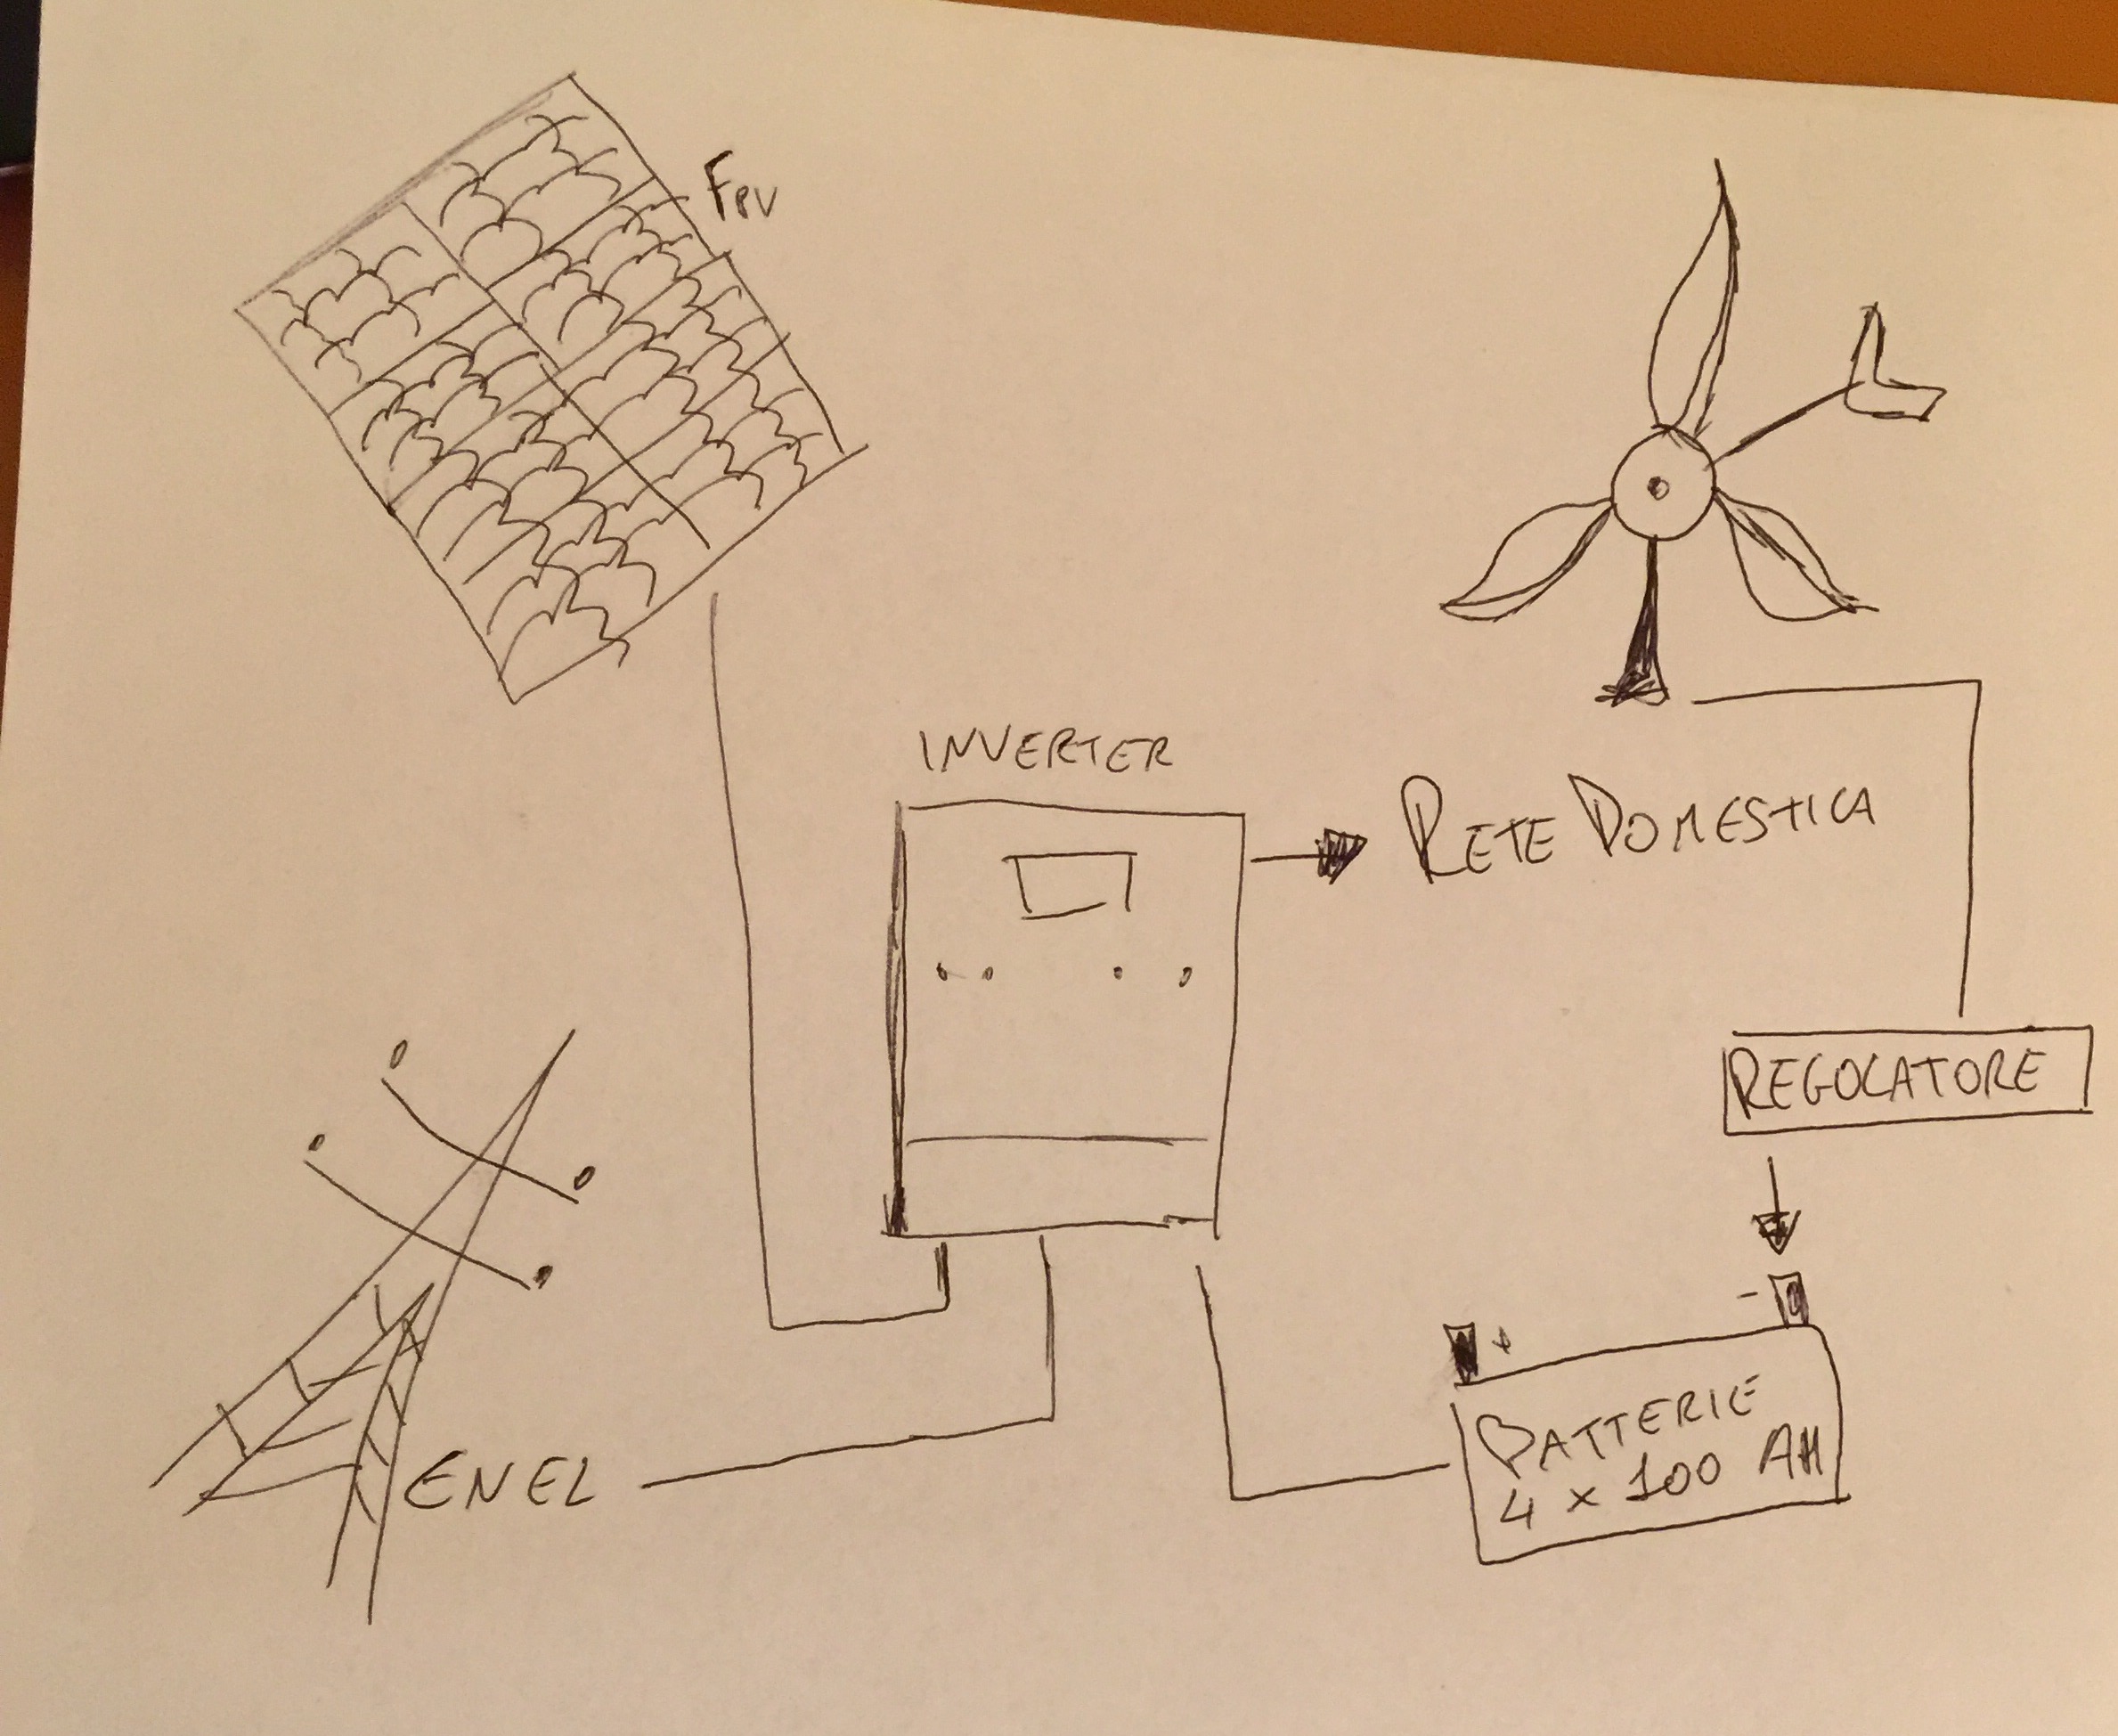 FPV
INVERTER
RETE DOMESTICA
REGOLATORE
+
-
BATTERIE
4 x 100 AH
ENEL